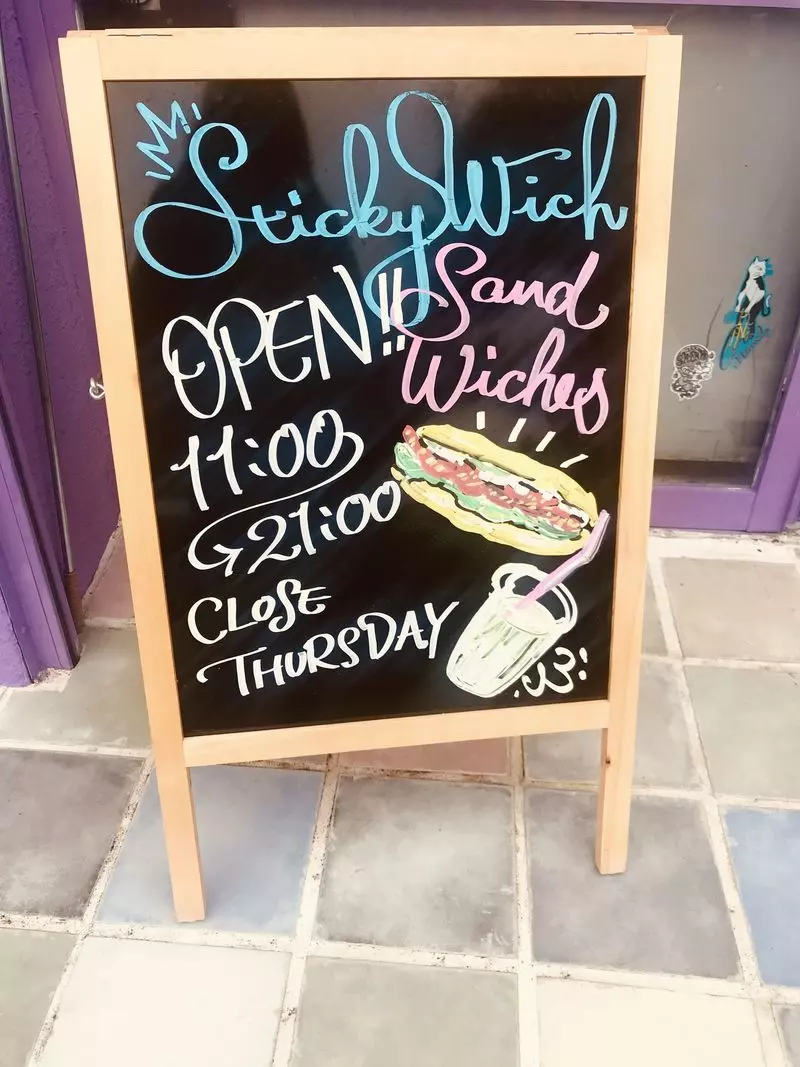 StickyWich
Sand
Wiches
OPEN!!
11:00
21:00
CLOSE
THURSDAY